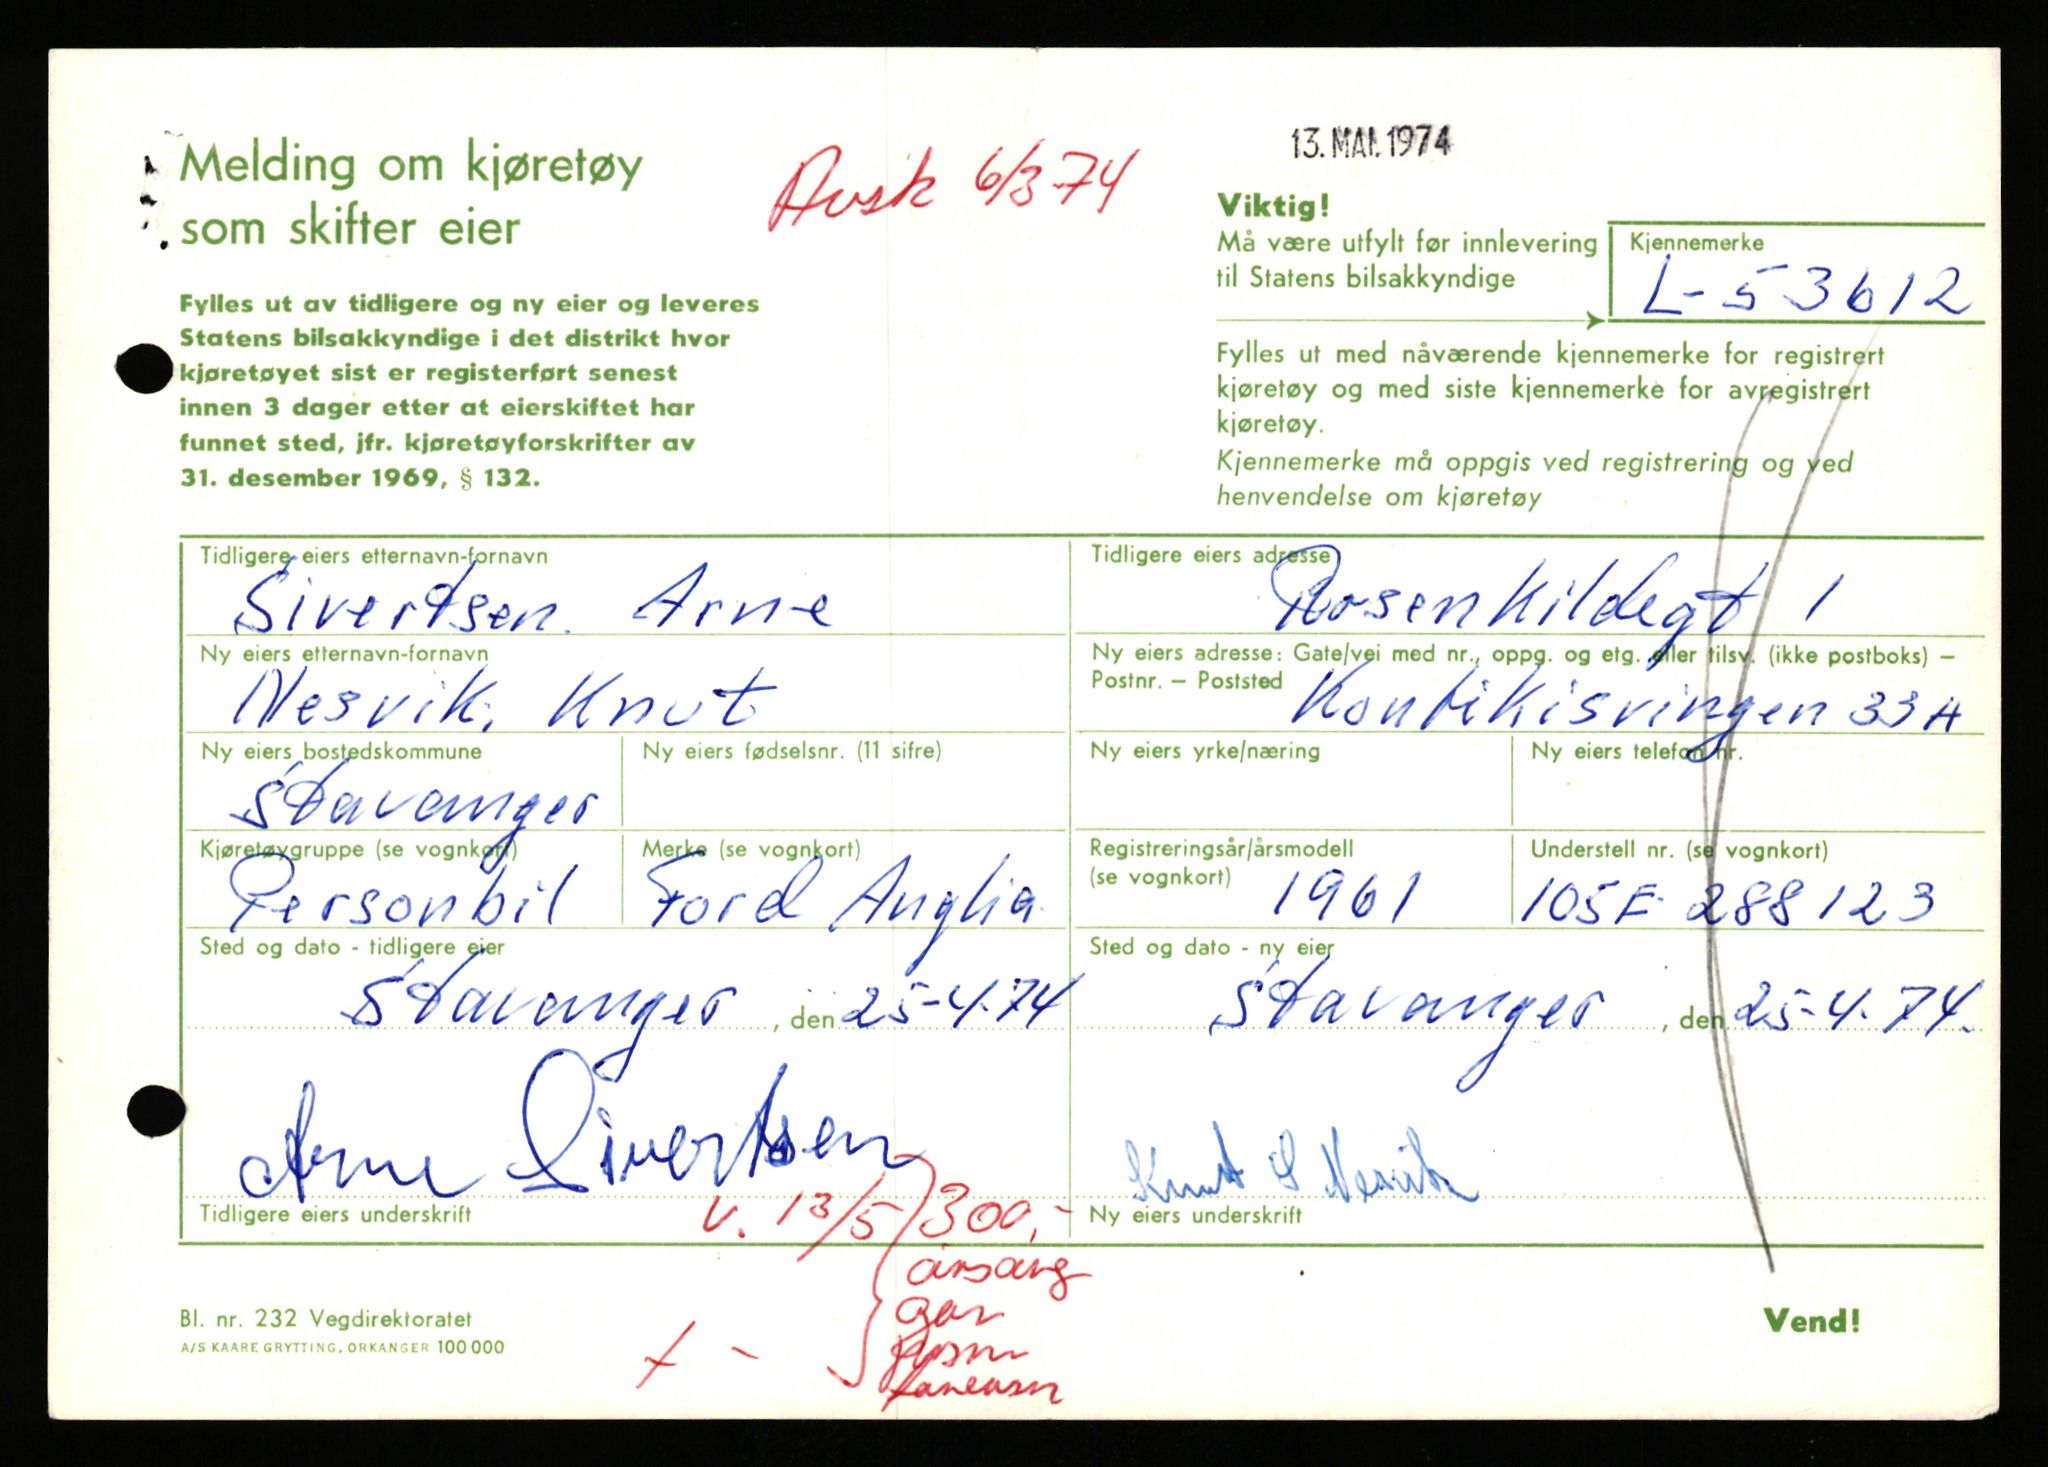 13. MAI. 1974
Melding om kjøretøy
som skifter eier
Avsk 6/3-74
Fylles ut av tidligere og ny eier og leveres
Statens bilsakkyndige i det distrikt hvor
kjøretøyet sist er registerført senest
innen 3 dager etter at eierskiftet har
funnet sted, jfr. kjøretøyforskrifter av
31. desember 1969, § 132.
Viktig!
Må være utfylt før innlevering
til Statens bilsakkyndige
Kjennemerke
L-53612
Fylles ut med nåværende kjennemerke for registrert
kjøretøy og med siste kjennemerke for avregistrert
kjøretøy.
Kjennemerke må oppgis ved registrering og ved
henvendelse om kjøretøy
Tidligere eiers etternavn-fornavn
Sivertsen. Arne
Tidligere eiers adresse
Rosenkildegt 1
Ny eiers etternavn-fornavn
Nesvik, Knut
Ny eiers adresse: Gate/vei med nr., oppg. og etg. eller tilsv. (ikke postboks) –
Postnr. – Poststed
Kontikisvingen 33A
Ny eiers bostedskommune
Stavanger
Ny eiers fødselsnr. (11 sifre)
Ny eiers yrke/næring
Ny eiers telefon nr.
Kjøretøygruppe (se vognkort)
Personbil
Merke (se vognkort)
Ford Anglia
Registreringsår/årsmodell
(se vognkort)
1961
Understell nr. (se vognkort)
105E 288123
Sted og dato - tidligere eier
Stavanger, den 25-4-74
Sted og dato - ny eier
Stavanger, den 25-4.74.
Arne Sivertsen
Tidligere eiers underskrift
Knut S Nesvik
Ny eiers underskrift
v. 13/5
300,-
Bl. nr. 232 Vegdirektoratet
A/S KAARE GRYTTING, ORKANGER 100 000
Vend!